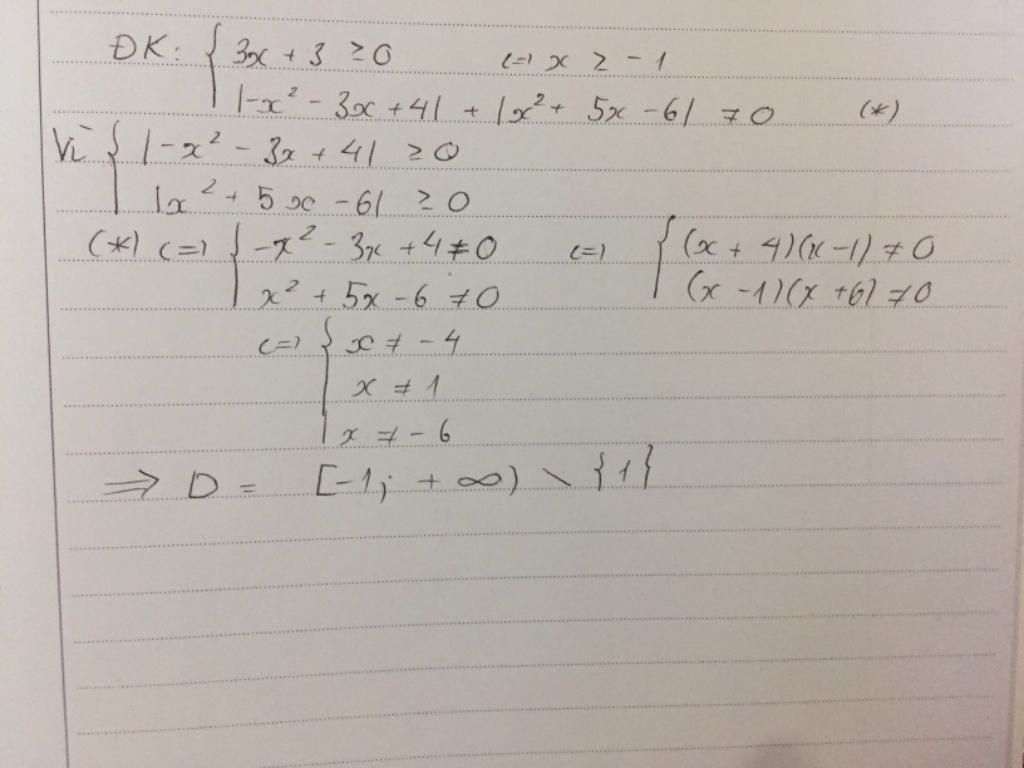 ĐK: { 3x + 3 ≥ 0 <=> x ≥ -1
|-x² - 3x + 4| + |x² + 5x - 6| ≠ 0 (*)
Vì { |-x² - 3x + 4| ≥ 0
|x² + 5x - 6| ≥ 0
(*) <=> { -x² - 3x + 4 ≠ 0 <=> { (x + 4)(x - 1) ≠ 0
x² + 5x - 6 ≠ 0 (x - 1)(x + 6) ≠ 0
<=> { x ≠ -4
x ≠ 1
x ≠ -6
=> D = [-1; +∞) \ {1}